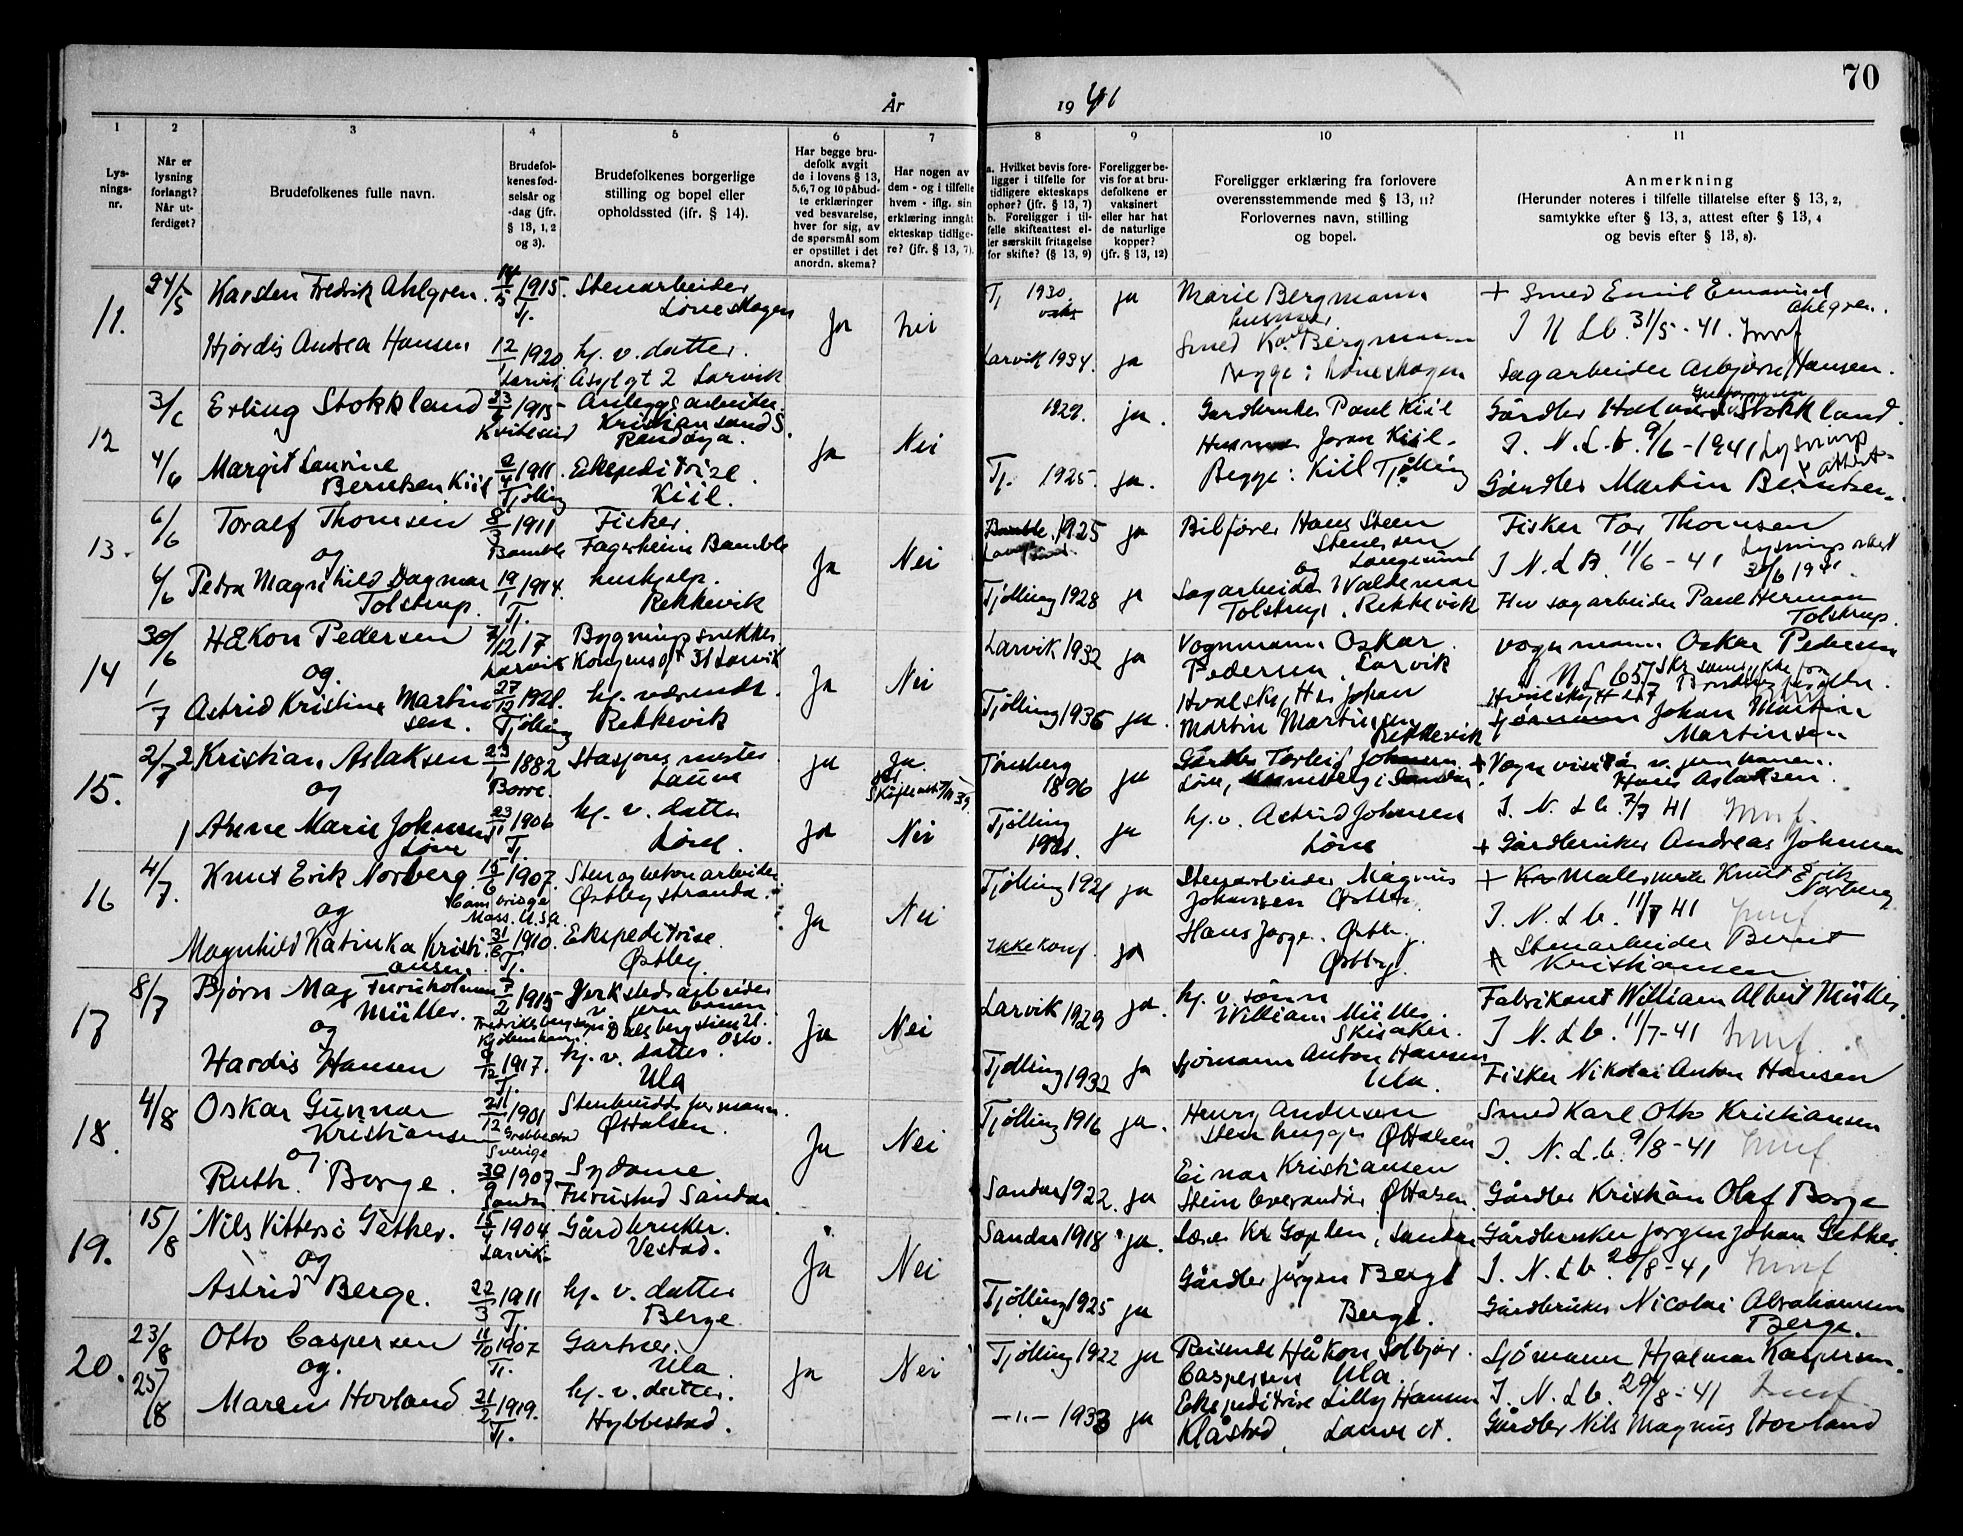 70
År 1941
1 2 3 4 5 6 7 8 9 10 11
Lys-
nings-
nr.
Når er
lysning
forlangt?
Når ut-
ferdiget?
Brudefolkenes fulle navn.
Brudefol-
kenes fød-
selsår og
-dag (jfr.
§ 13, 1, 2
og 3).
Brudefolkenes borgerlige
stilling og bopel eller
opholdssted (ifr. § 14).
Har begge bru-
defolk avgit
de i lovens § 13,
5,6,7 og 10 påbud-
te erklæringer
ved besvarelse,
hver for sig, av
de spørsmål som
er opstillet i det
anordn. skema?
Har nogen av
dem - og i tilfelle
hvem - iflg. sin
erklæring inngått
ekteskap tidlige-
re? (jfr. § 13, 7).
a. Hvilket bevis fore-
ligger i tilfelle for
tidligere ekteskaps
opher? (jfr. § 13, 7)
b. Foreligger i til-
felle skifteattest el-
ler særskilt fritagelse
for skifte? (§ 13, 9)
Foreligger be-
vis for at bru-
defolkene er
vaksinert
eller har hat
de naturlige
kopper?
(jfr. § 13, 12)
Foreligger erklæring fra forlovere
overensstemmende med § 13, 11?
Forlovernes navn, stilling
og bopel.
Anmerkning
(Herunder noteres i tilfelle tillatelse efter § 13, 2,
samtykke efter § 13, 3, attest efter § 13, 4
og bevis efter § 13, 8).
11. 24/5 Karsten Fredrik Ahlgren. 14/5 1915. Tj. Stenarbeider
Løveskogen
Ja Nei
Tj 1930 ja Marie Bergmann
husmor
+ Smed Emil Emanuel
Ahlgren.
I N Lb. 31/5-41.
Hjørdis Andrea Hansen 12/1 1920 Larvik hj. v. datter.
Asylgt 2 Larvik
Larvik 1934. ja Smed Karl Bergmann
Begge: Løveskogen
Sagarbeider Asbjørn Hansen.
12 3/6 Erling Stokkland 23/6 1915 Kviteseid Anleggsarbeider.
Kristiansand S.
Randøya.
Ja Nei
1929. ja. Gardbruker Paul Kiil
Husmor Joran Kiil.
Begge: Kiil Tjølling
Gårdbr Halvord Stokkland.
I. N. L. b. 9/6-1941 Lysnings
attest
4/6 Margit Laurine
Berntsen, Kiil 2/4 1911. Tjølling Ekspeditrise
Kiil.
Tj. 1925. ja.
Gårdbr Martin Berntsen.
13. 6/6 Toralf Thomsen 8/3 1911 Bamble Fisker.
Fagerheim Bamble
Ja Nei
Bamble 1925 ja Bilfører Hans Steen
Stenersen
Langesund
Fisker Tor Thomsen
I N. L B. 11/6-41
og
6/6 Petra Magnhild Dagmar
Tolstrup. 19/1 1914. Tj. hushjelp.
Rekkevik
Tjølling 1928 ja og
Sagarbeider Waldemar
Tolstrup, Rekkevik
Hv sagarbeider Paul Herman
Tolstrup.
14 30/6 Håkon Pedersen 7/12 17 Larvik Bygningssnekker
Larvik
Ja Nei
Larvik 1932 ja Vognmann Oskar
Pedersen, Larvik
Vognmann Oskar Pedersen
og.
1/7 Astrid Kristine Martin
sen. 27/12 1921. Tjølling hj. værende.
Rekkevik
Tjølling 1936 ja. Johan
Martin Martinsen
Rekkevik
Johan Martin
Martinsen
15. 2/7 Kristian Aslaksen 23/1 1882 Borre. Stasjonsmester
Lauve
ja Ja.
Tønsberg
1896 ja
Vognvisitør v. jernbanen.
Hans Aslaksen.
I. N. L b. 7/7 41
og
Anne Marie Johnsen
Løve 23/11 1906 Tj. hj. v. datter
Løve.
Ja Nei
Tjølling
1921. ja hj. v. Astrid Johnsen
Løve
+ Gårdbruker Andreas Johnsen
16 4/7. Knut Erik Norberg. 15/6 1907. Cambridge
Mass. U.S.A. Sten og betonarbeider
Østbystranda.
Ja Nei
Tjølling 1921 ja Stenarbeider Magnus
Johansen Østby.
+ Malermester Knut Erik
Norberg
I. N. L b. 11/7 41
og
Magnhild Katinka Kristi
ansen. 31/8 1910. Tj. Ekspeditrise.
Østby.
Ikke konf. ja Hans Jørg. Ørb
Østby.
Stenarbeider Bernt
Kristiansen
17 8/7 Bjørn Mag Furuholmen
Müller. 7/2 1915 Verkstedsarbeider
v. jernbanen
Oslo.
Ja Nei
Larvik 1929 ja. hj. v. sønn
William Müller
Skisaker.
Fabrikant William Albert Müller.
I N. L b. 11/7-41
og
Hardis Hansen 9/12 1917. Tj. hj. v. datter.
Ula
Tjølling 1932 ja Sjømann Anton Hansen
Ula.
Fisker Nikolai Anton Hansen
18. 4/8 Oskar Gunnar
Kristiansen 21/12 1901 Grebbestad
Sverige Stenhuddsformann.
Ø Halsen.
Ja Nei
Tjølling 1916 ja. Henry Andersen
Stenhugger Ø Halsen
Smed Karl Otto Kristiansen
I. N. L. b. 9/8-41
og.
Ruth Borge. 30/9 1907 Sandar Sydame
Furustad Sandar.
Sandar 1922. ja Einar Kristiansen
Steinleverandør Ø Halsen.
Gårdbr Kristian Olaf Borge
19. 15/8 Nils Vittersø Gether. 15/4 1904 Larvik Gårdbruker.
Vestad.
Ja Nei
Sandar 1918 ja. Lærer Kr Goplen, Sandar
Gårdbruker Jørgen Johan Gether.
I. N. L b. 20/8-41
og
Astrid Berge. 22/3 1911 Tj. hj. v. datter
Berge
Tjølling 1925 ja Gårdbr Jørgen Berge
Berge.
Gårdbruker Nicolai Abrahamsen
Berge.
20. 23/8 Otto Caspersen 11/10 1907 Tj. Gartner.
Ula
Ja Nei
Tjølling 1922 ja Reisende Håkon Solbjør
Caspersen Ula.
Sjømann Hjalmar Kaspersen.
I. N. L b. 29/8-41
og.
25/8 Maren Hovland 21/2 1919. Tj. hj. v. datter.
Hybbestad.
—"— 1933 ja Ekspeditrise Lilly Hansen
Klåstad, Lauve st.
Gårdbr Nils Magnus Hovland